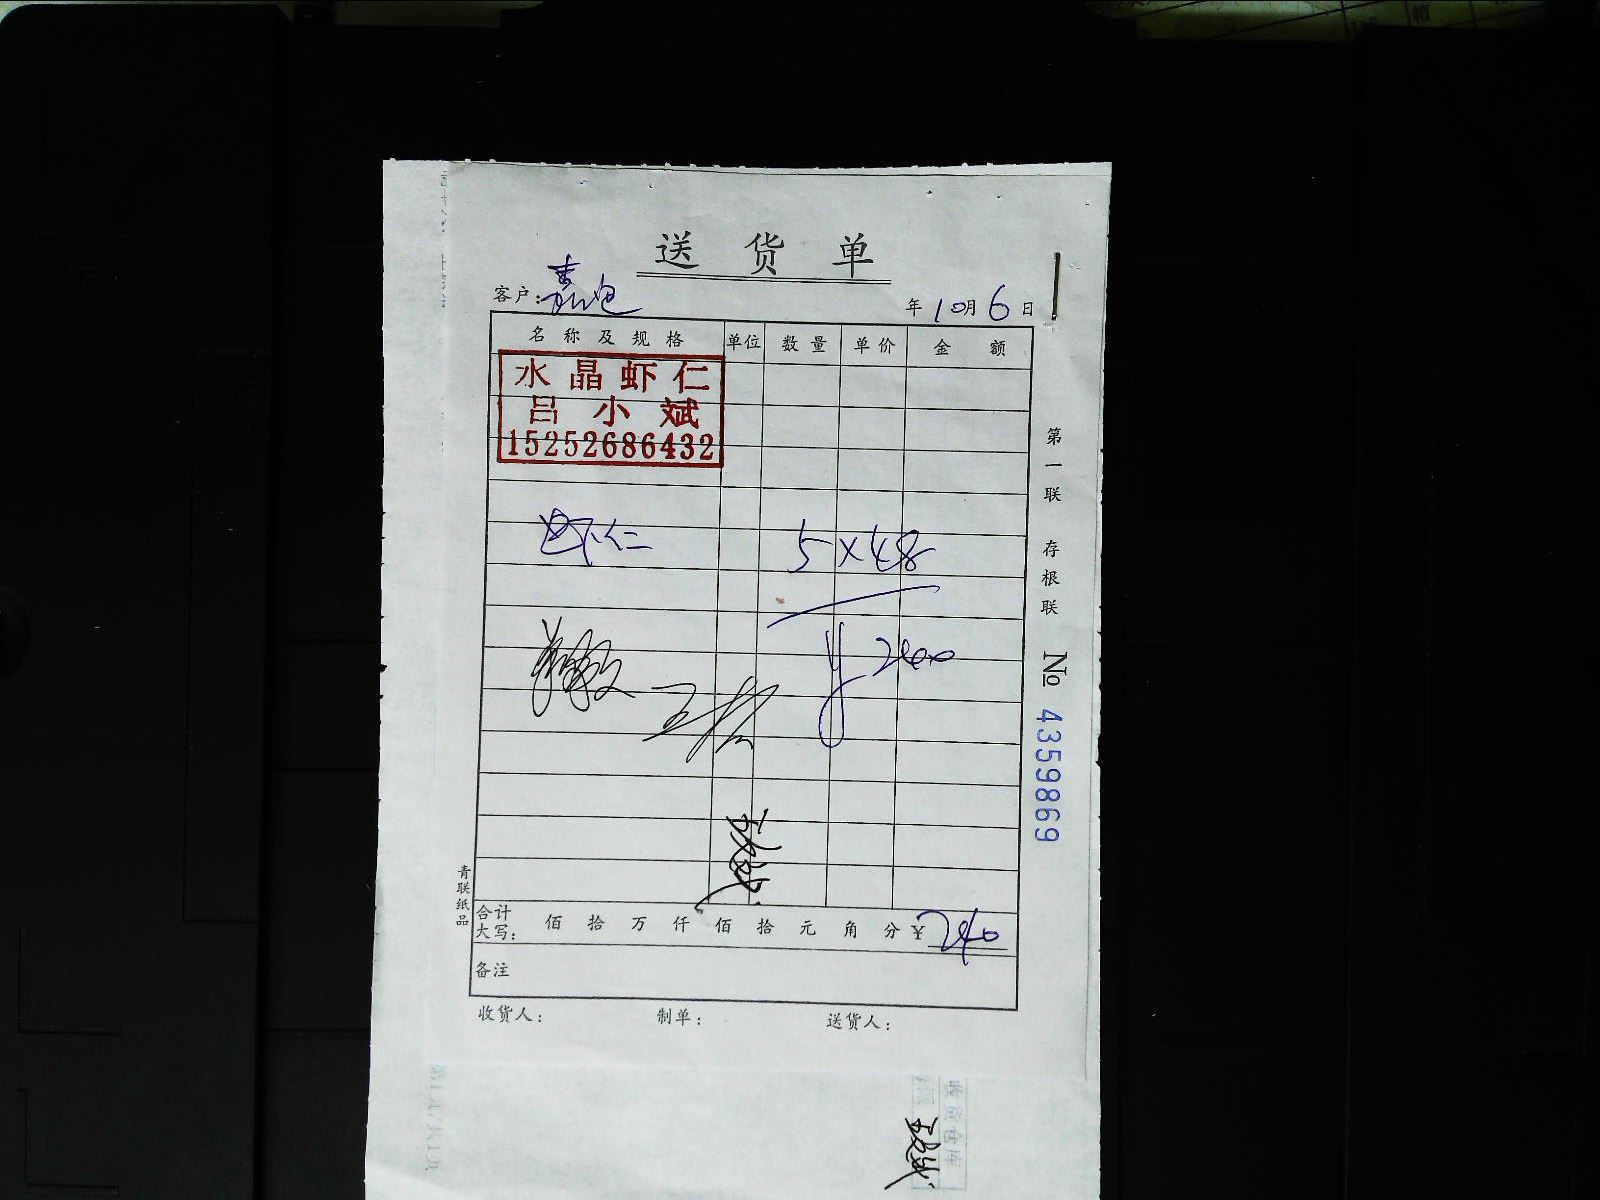 送 货 单
客户: 嘉
年 10月 6日
名称及规格 单位 数量 单价 金额
水晶虾仁
吕小斌
15252686432
虾仁 5×48
¥ 240
第一联 存根联 No 4359869
青联纸品
合计大写: 佰 拾 万 仟 佰 拾 元 角 分 ¥240
备注
收货人: 制单: 送货人: